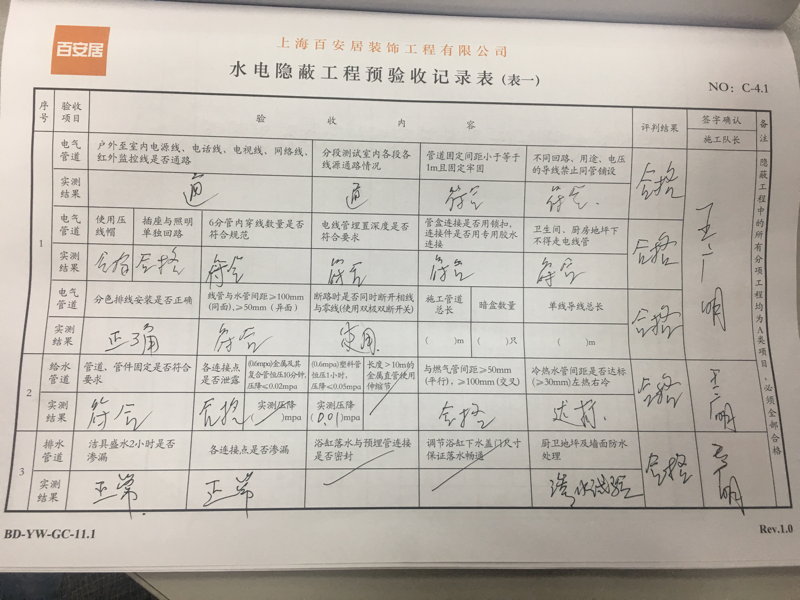 百安居
上海百安居装饰工程有限公司
水电隐蔽工程预验收记录表(表一)
NO: C-4.1
序号 验收项目 验收内容 评判结果 签字确认 备注
施工队长
1
电气管道 户外至室内电源线、电话线、电视线、网络线、红外监控线是否通路 分段测试室内各段各线源通路情况 管道固定间距小于等于1m且固定牢固 不同回路,用途、电压的导线禁止同管铺设
实测结果 通 通 符合 符合. 合格
电气管道 使用压线帽 插座与照明单独回路 6分管内穿线数量是否符合规范 电线管埋置深度是否符合要求 管盒连接是否用锁扣,连接件是否用专用胶水连接 卫生间、厨房地坪下不得走电线管
实测结果 合格 合格 符合 符合 符合 符合 合格
电气管道 分色排线安装是否正确 线管与水管间距≥100mm(同面),≥50mm(异面) 断路时是否同时断开相线与零线(使用双极双断开关) 施工管道总长 暗盒数量 单线导线总长
实测结果 正确 符合 ( )m ( )只 ( )m 合格
2
给水管道 管道、管件固定是否符合要求 各连接点是否泄露 (0.6mpa)金属及其复合管恒压10分钟,压降≤0.02mpa (0.6mpa)塑料管恒压1小时,压降≤0.05mpa 长度>10m的金属直管使用伸缩节 与燃气管间距≥50mm(平行),≥100mm(交叉) 冷热水管间距是否达标(≥30mm)左热右冷
实测结果 符合 合格 实测压降( )mpa 实测压降(0.01)mpa 合格 达标 合格
3
排水管道 洁具盛水2小时是否渗漏 各连接点是否渗漏 浴缸落水与预埋管连接是否密封 调节浴缸下水盖()尺寸保证落水畅通 厨卫地坪及墙面防水处理
实测结果 正常. 正常 合格
隐蔽工程中的所有分项工程均为A类项目,必须全部合格
BD-YW-GC-11.1
Rev.1.0